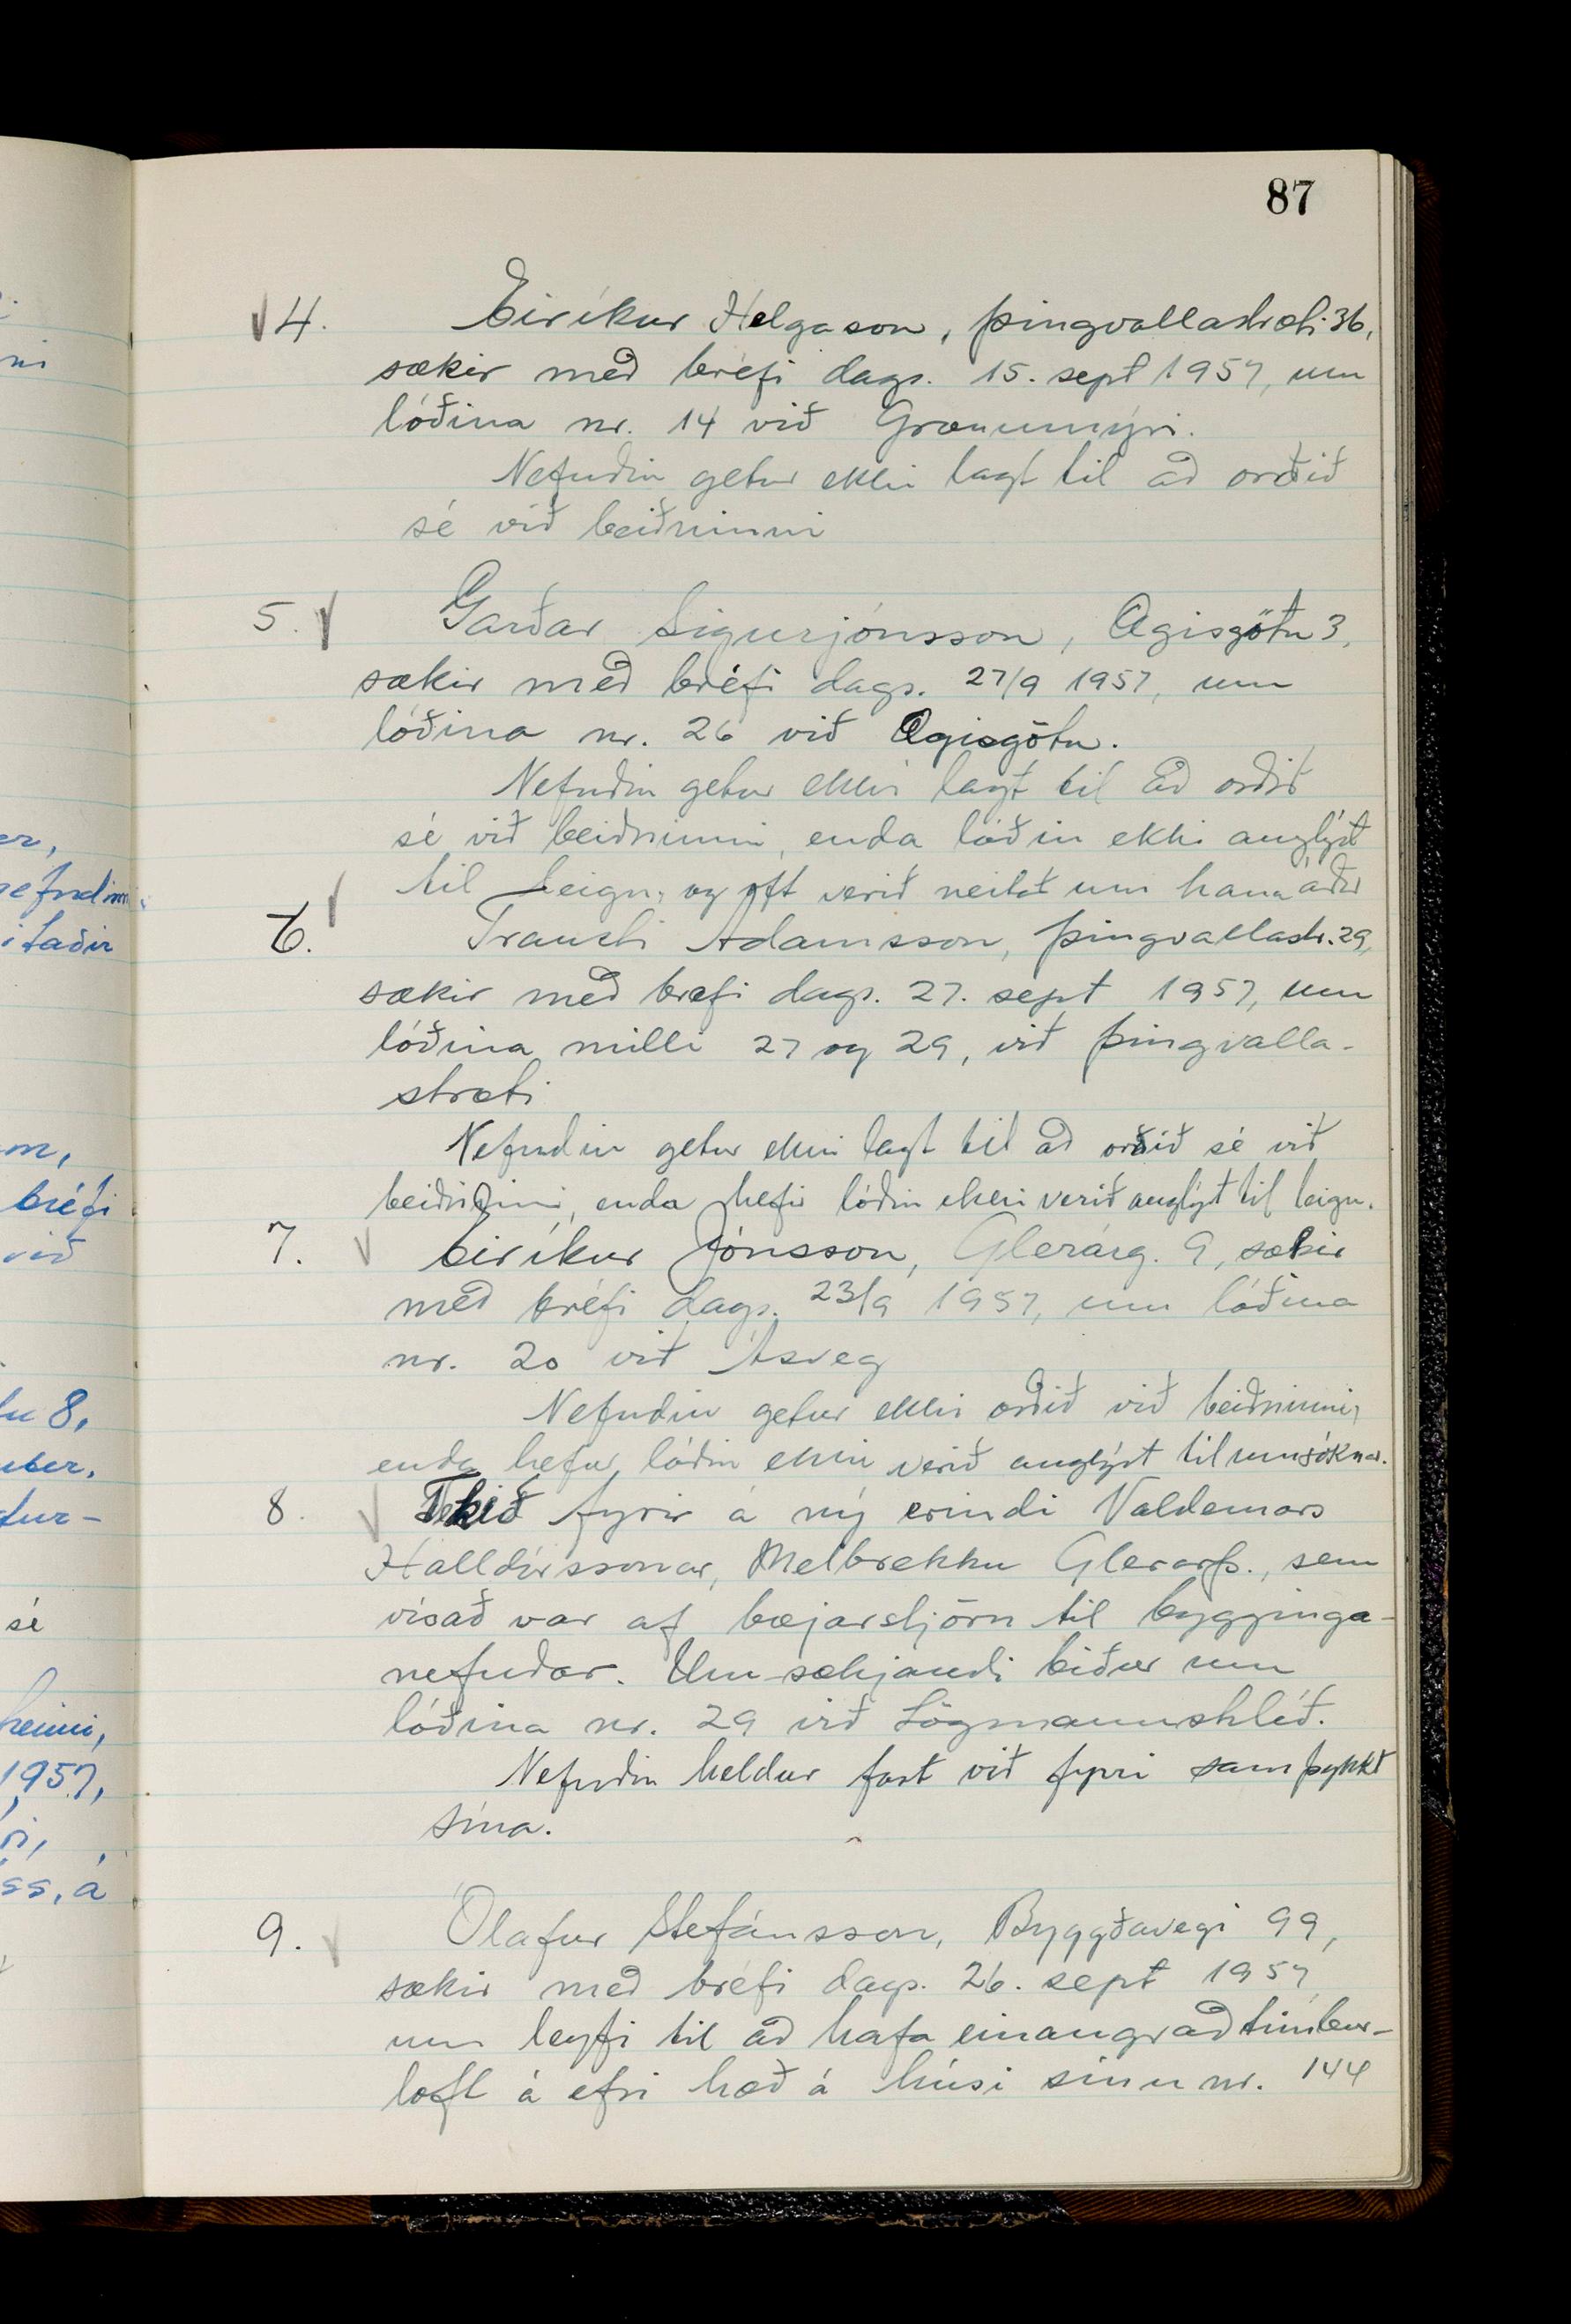 87
4. Eiríkur Helgason, Þingvallastræti 36,
sækir með bréfi dags. 15. sept 1957, um
lóðina nr. 14 við Grænumýri.
Nefndin getur ekki lagt til að orðið
sé við beiðninni
5. Garðar Sigurjónsson, Ægisgötu 3,
sækir með bréfi dags. 27/9 1957, um
lóðina nr. 26 við Ægisgötu.
Nefndin getur ekki lagt til að orðið
sé við beiðninni, enda lóðin ekki auglýst
til leigu, og oft verið neitað um hana áður
6. Trausti Adamsson, Þingvallastr. 29,
sækir með bréfi dags. 27. sept 1957, um
lóðina milli 27 og 29, við Þingvalla-
stræti
Nefndin getur ekki lagt til að orðið sé við
beiðninni, enda hefir lóðin ekki verið auglýst til leigu.
7. Eiríkur Jónsson, Glerárg. 9, sækir
með bréfi dags. 23/9 1957, um lóðina
nr. 20 við Ásveg
Nefndin getur ekki orðið við beiðninni,
enda hefur lóðin ekki verið auglýst til umsóknar.
8. Tekið fyrir á ný erindi Valdemars
Halldórssonar, Melbrekku Glerárþ., sem
vísað var af bæjarstjórn til bygginga-
nefndar. Umsækjandi biður um
lóðina nr. 29 við Lögmannshlíð.
Nefndin heldur fast við fyrri samþykkt
sína.
9. Ólafur Stefánsson, Byggðavegi 99,
sækir með bréfi dags. 26. sept 1957
um leyfi til að hafa einangrað timbur-
loft á efri hæð á húsi sínu nr. 144
er,
nefndinni
ítaðir
m,
bréfi
við
tu 8,
mber,
tur-
sé
heimi,
1957,
ss, á